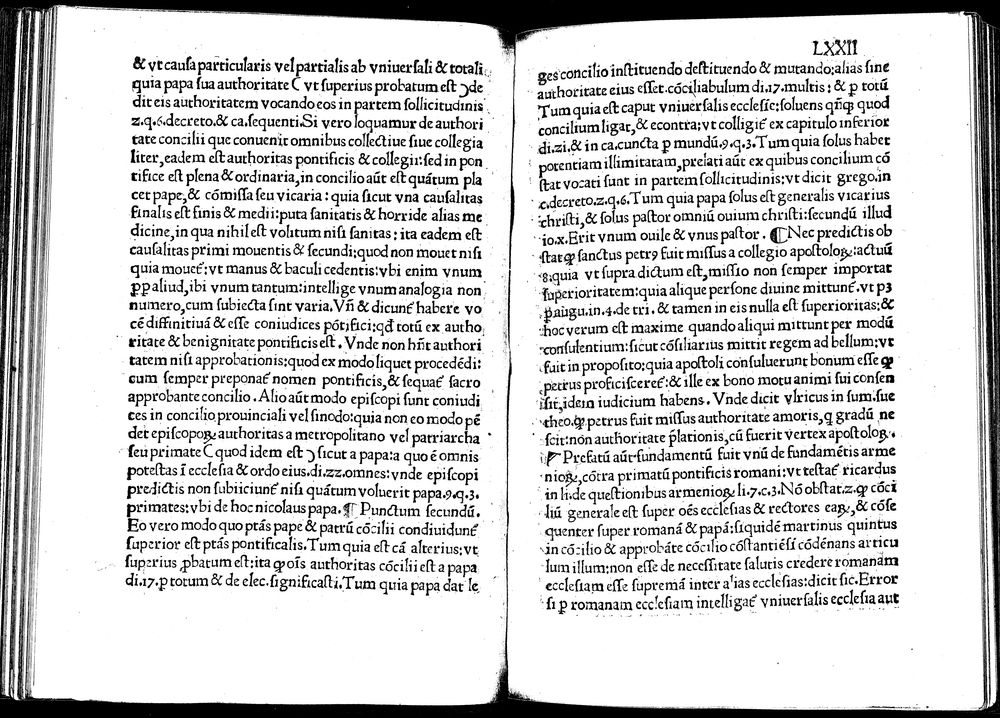 & vt causa particularis vel partialis ab vniuersali & totali
quia papa sua authoritate ( vt superius probatum est ) de
dit eis authoritatem vocando eos in partem sollicitudinis
2.q.6.decreto.& ca.sequenti.Si vero loquamur de authori
tate concilii que conuenit omnibus collectiue siue collegia
liter,eadem est authoritas pontificis & collegii:sed in pon
tifice est plena & ordinaria,in concilio aūt est quātum pla
cet pape,& cōmissa seu vicaria : quia sicut vna causalitas
finalis est finis & medii:puta sanitatis & horride alias me
dicine,in qua nihil est volitum nisi sanitas : ita eadem est
causalitas primi mouentis & secundi;quod non mouet nisi
quia mouet᷑:vt manus & baculi cedentis:vbi enim vnum
ꝓp aliud,ibi vnum tantum:intellige vnum analogia non
numero,cum subiecta sint varia.Vñ & dicunt᷑ habere vo
cē diffinitiuā & esse coniudices pōtifici:qđ totū ex autho
ritate & benignitate pontificis est . Vnde non hñt authori
tatem nisi approbationis:quod ex modo liquet procedēdi:
cum semper preponat᷑ nomen pontificis,& sequat᷑ sacro
approbante concilio . Alio aūt modo episcopi sunt coniudi
ces in concilio prouinciali vel sinodo:quia non eo modo pē
det episcopoꝝ authoritas a metropolitano vel patriarcha
seu primate ( quod idem est ) sicut a papa:a quo ē omnis
potestas ī ecclesia & ordo eius.di.22.omnes:vnde episcopi
predictis non subiiciunt᷑ nisi quātum voluerit papa.9.q.3.
primates:vbi de hoc nicolaus papa. ¶ Punctum secundū.
Eo vero modo quo ptās pape & patrū cōcilii condiuidunt᷑
superior est ptās pontificalis.Tum quia est cā alterius;vt
superius ꝓbatum est:ita ꝙ oīs authoritas cōcilii est a papa
di.17.ꝑ totum & de elec.significasti.Tum quia papa dat le
LXXII
ges concilio instituendo destituendo & mutando:alias sine
authoritate eius esset cōciliabulum di.17.multis : & ꝑ totū
Tum quia est caput vniuersalis ecclesie:soluens qñꝗ quod
concilium ligat,& econtra:vt colligit᷑ ex capitulo inferior
di.21.& in ca.cuncta ꝑ mundū.9.q.3.Tum quia solus habet
potentiam illimitatam,prelati aūt ex quibus concilium cō
stat vocati sunt in partem sollicitudinis:vt dicit grego.in
c.decreto.2.q.6.Tum quia papa solus est generalis vicarius
christi,& solus pastor omniū ouium christi:secundū illud
io.x.Erit vnum ouile & vnus pastor . ¶ Nec predictis ob
stat ꝙ sanctus petrꝰ fuit missus a collegio apostoloꝝ:actuū
8:quia vt supra dictum est,missio non semper importat
superioritatem:quia alique persone diuine mittunt᷑.vt p3
ꝑ augu.in.4.de tri.& tamen in eis nulla est superioritas:&
hoc verum est maxime quando aliqui mittunt per modū
consulentium:sicut cōsiliarius mittit regem ad bellum:vt
fuit in proposito;quia apostoli consuluerunt bonum esse ꝙ
petrus proficisceret᷑:& ille ex bono motu animi sui consen
sit,idem iudicium habens. Vnde dicit vlricus in sum.sue
theo.ꝙ petrus fuit missus authoritate amoris,q gradū ne
scit:non authoritate p̄lationis,cū fuerit vertex apostoloꝝ.
¶ Prefatū aūt fundamentū fuit vnū de fundamētis arme
nioꝝ,cōtra primatū pontificis romani:vt testat᷑ ricardus
in li.de questionibus armenioꝝ li.7.c.3.Nō obstat.2.ꝙ cōci
liū generale est super oēs ecclesias & rectores eaꝝ,& cōse
quenter super romanā & papā:siquidē martinus quintus
in cōcilio & approbāte cōcilio cōstantiēsi cōdēnans articu
lum illum:non esse de necessitate salutis credere romanam
ecclesiam esse supremā inter alias ecclesias:dicit sic.Error
si ꝑ romanam ecclesiam intelligat᷑ vniuersalis ecclesia aut